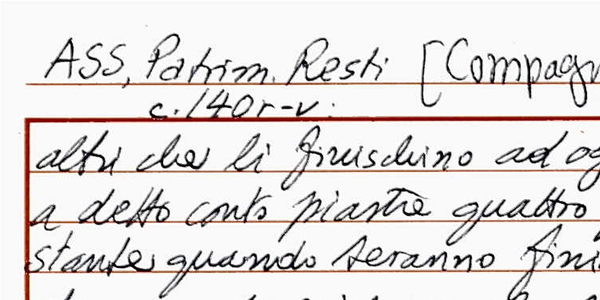 ASS, Patrim. Resti [Compagn
c. 140r-v:
altri che li finischino ad og
a detto conto piastre quattro
stante quando seranno fini